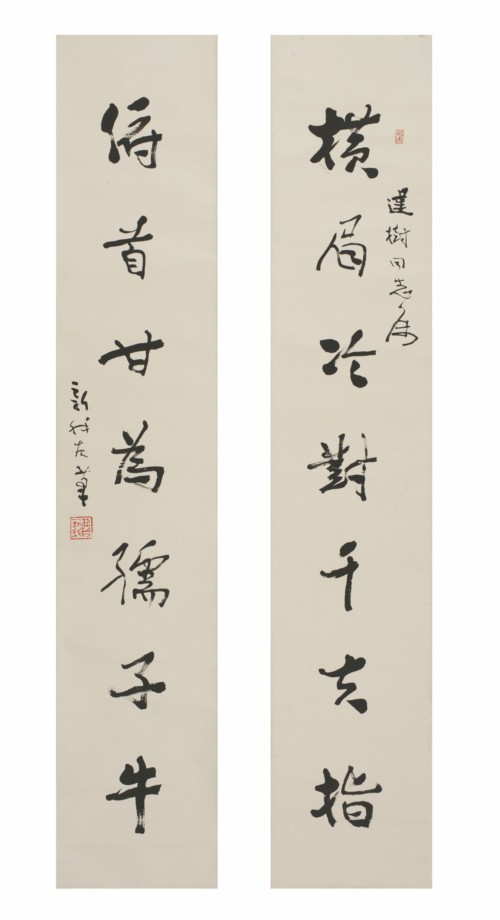 横眉冷對千夫指
建樹同志属
俯首甘為孺子牛
新我左筆